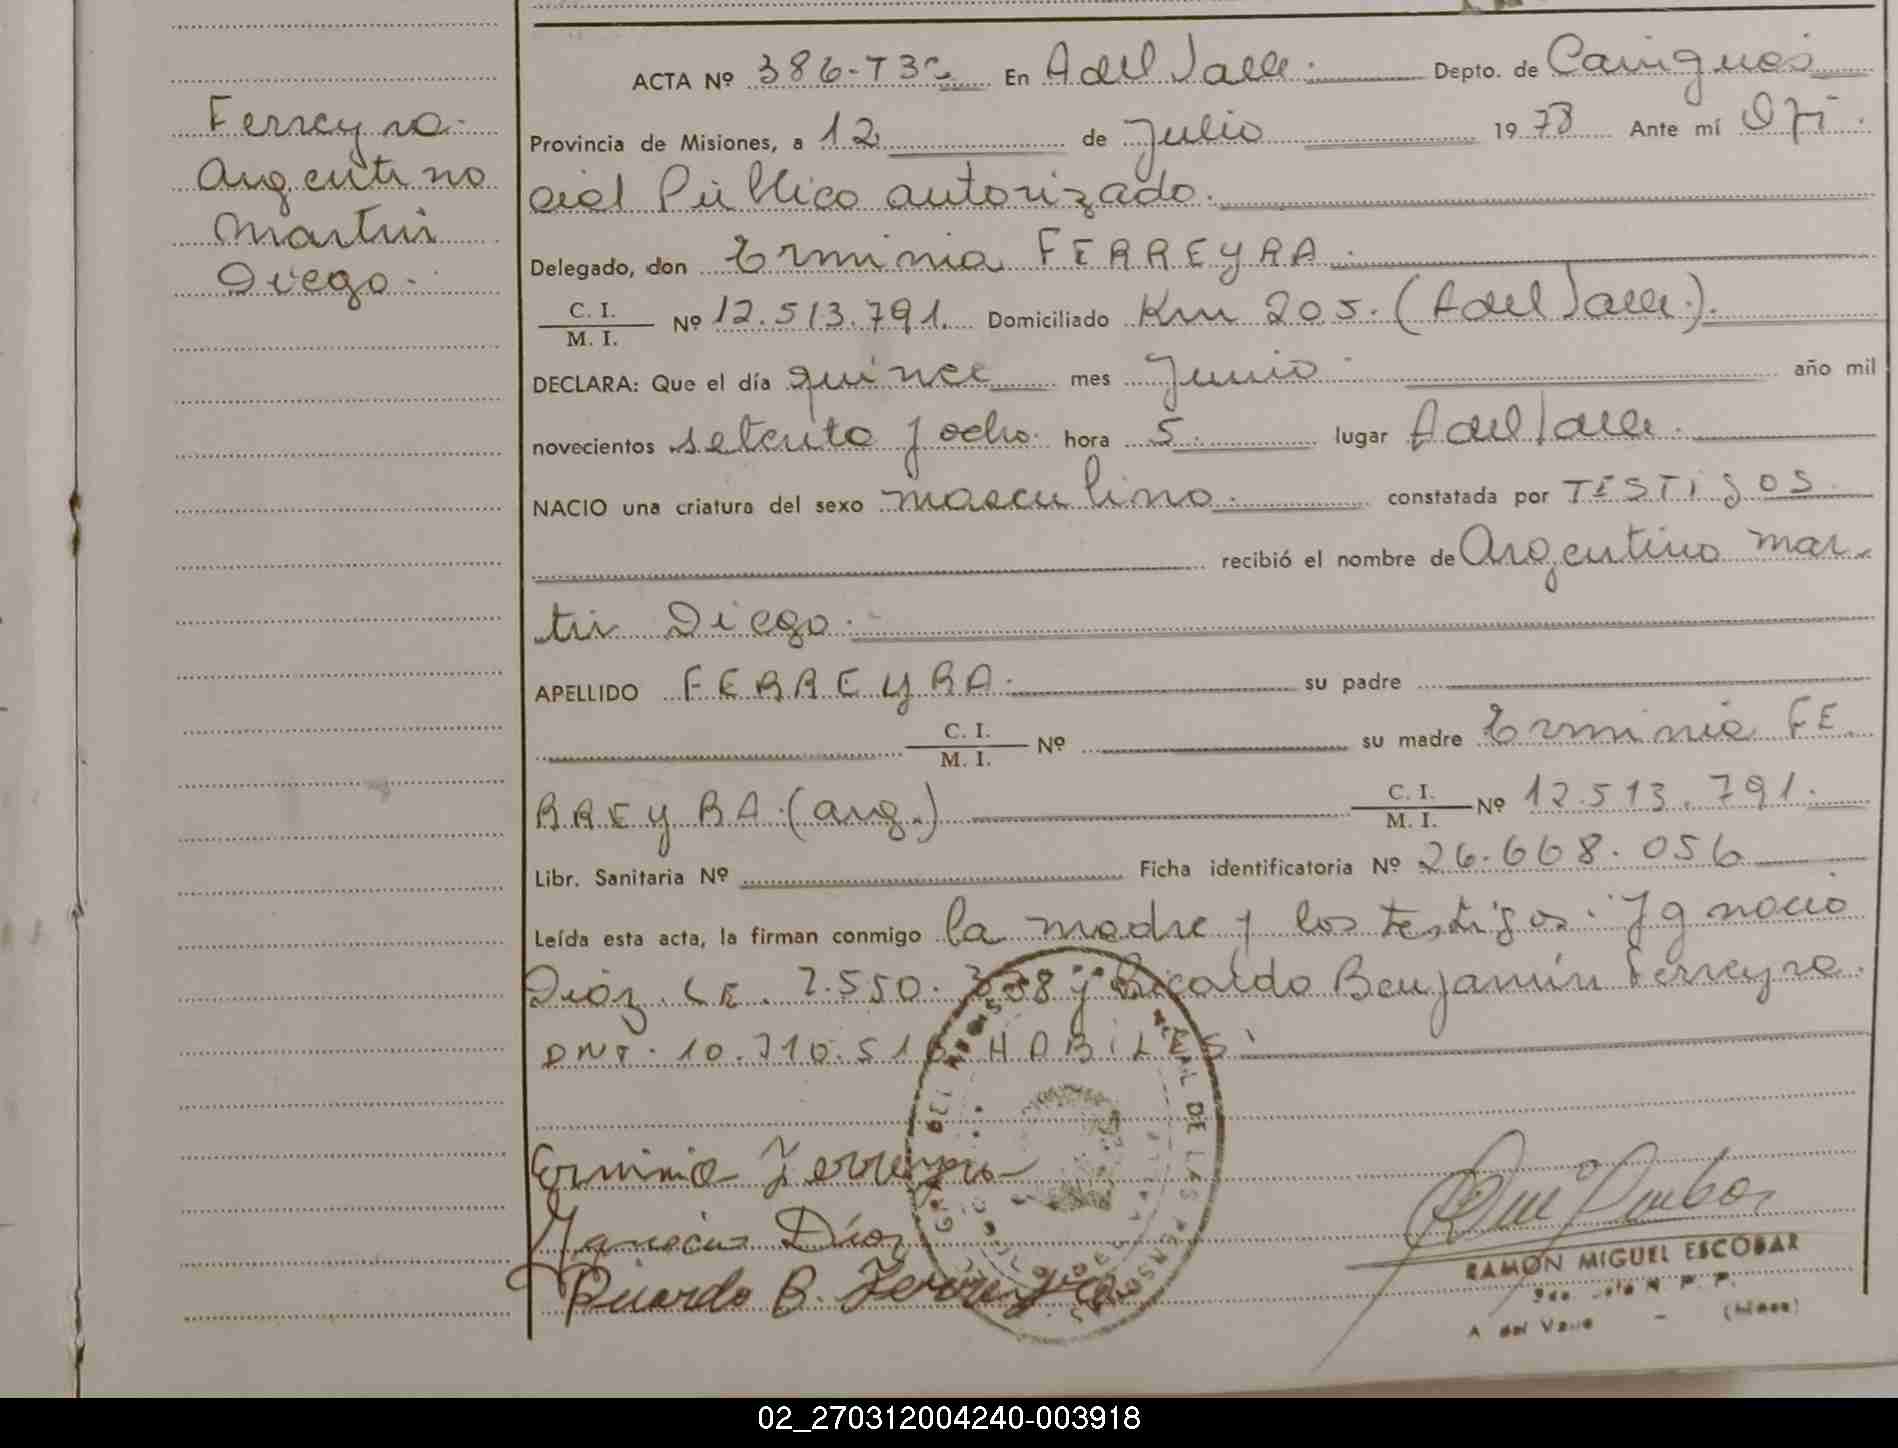 Ferreyra.
Argentino
Martin
Diego.
ACTA Nº 386-Tº3º En A del Valle. Depto. de Cainguás
Provincia de Misiones, a 12 de Julio 1978 Ante mí Ofi
cial Público autorizado.
Delegado, don Erminia FERREYRA.
C. I. / M. I. Nº 12.513.791. Domiciliado Km 205. (A del Valle.).
DECLARA: Que el día quince mes Junio año mil
novecientos setenta y ocho. hora 5. lugar A del Valle.
NACIO una criatura del sexo masculino. constatada por TESTigOS
recibió el nombre de Argentino Mar-
tin Diego.
APELLIDO FERREYRA. su padre
C. I. / M. I. Nº su madre Erminia FE
RREYRA (arg.) C. I. / M. I. Nº 12.513.791.
Libr. Sanitaria Nº Ficha identificatoria Nº 26.668.056
Leída esta acta, la firman conmigo la madre y los testigos: Ygnacio
Dióz. LE. 7.550.338 y Ricaldo Benjamín Ferreyra.
DNI. 10.710.516 HABiLES.
Erminia Ferreyra
Ygnacio Díoz
Ricardo B. Ferreyra
RAMON MIGUEL ESCOBAR
A del Valle (Mnes)
02_270312004240-003918